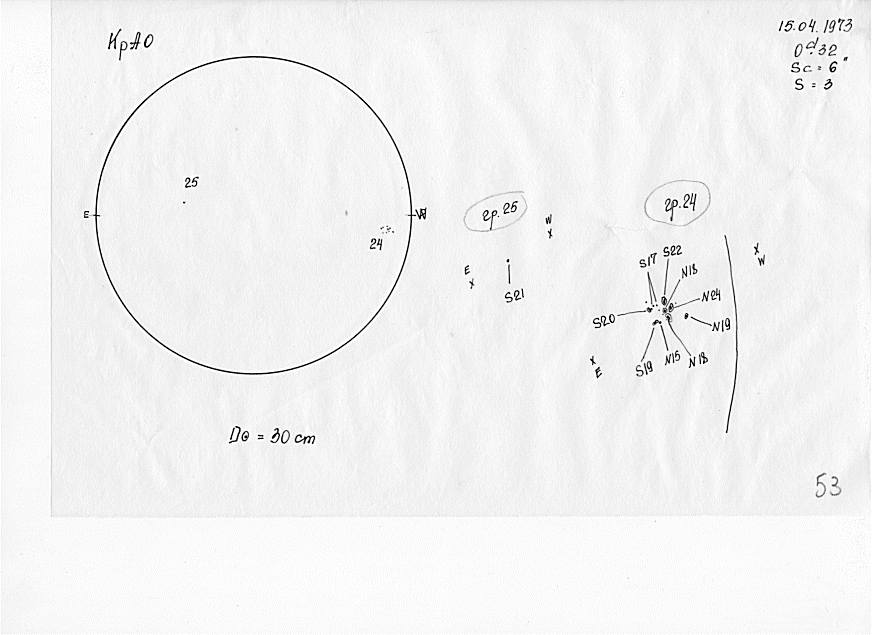 КрАО
15.04.1973
0ᵈ.32
Sc = 6"
S = 3
25
E
W
24
D⊙ = 30 cm
гр. 25
W
x
E
x
S21
гр. 24
S17
S22
N18
N24
N19
S20
S19
N15
N18
x
W
x
E
53